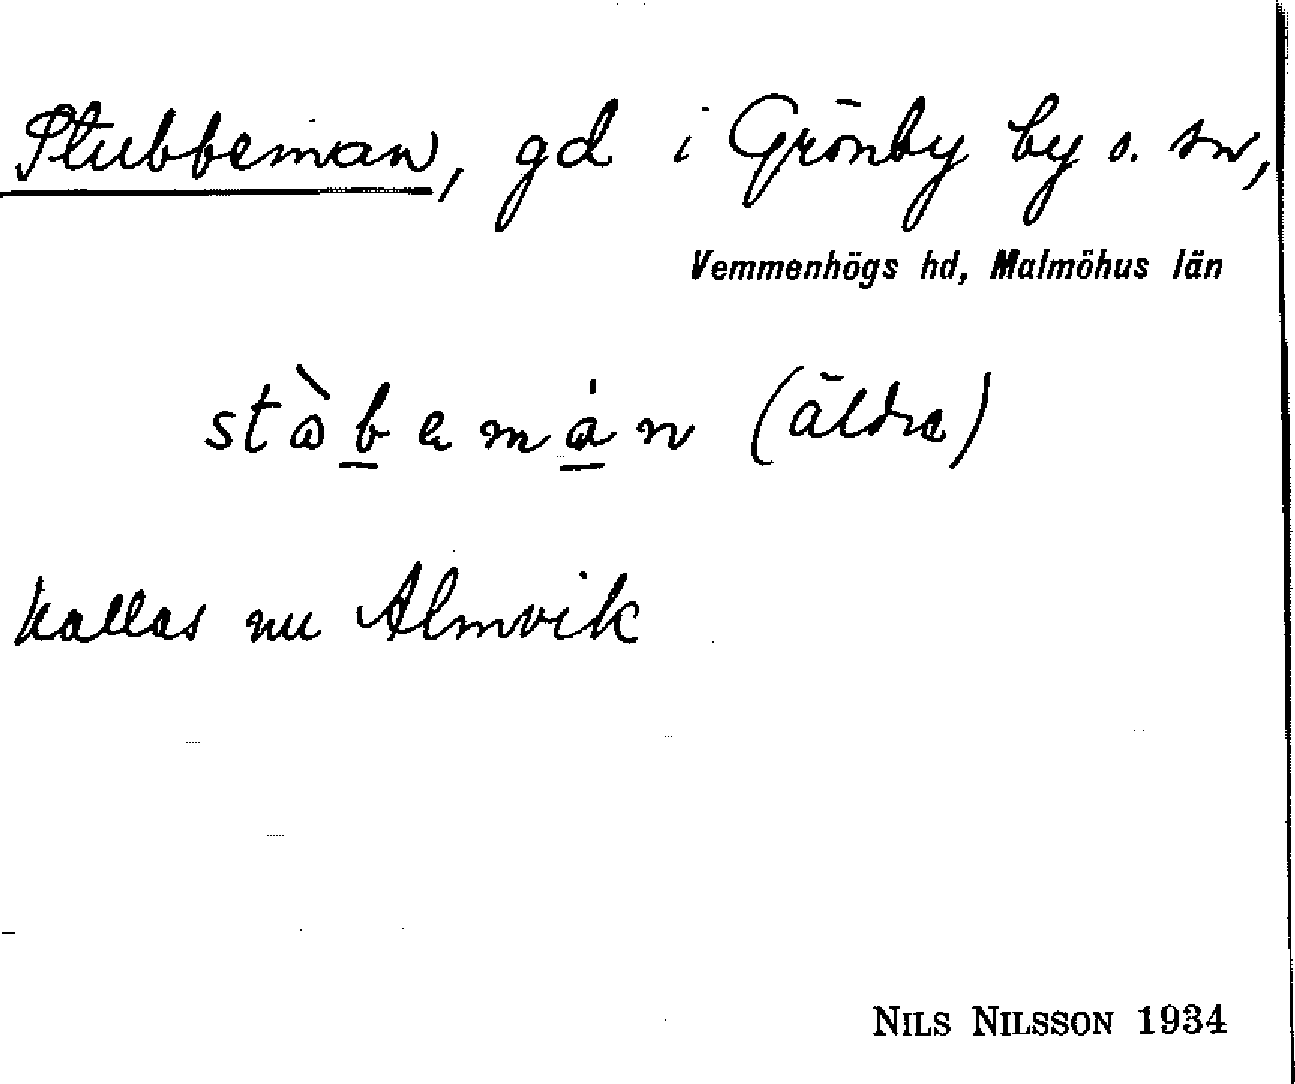 Stubbeman, gd i Grönby by o. sn,
Vemmenhögs hd, Malmöhus län
stòbemån (äldre)
kallas nu Almvik
NILS NILSSON 1934